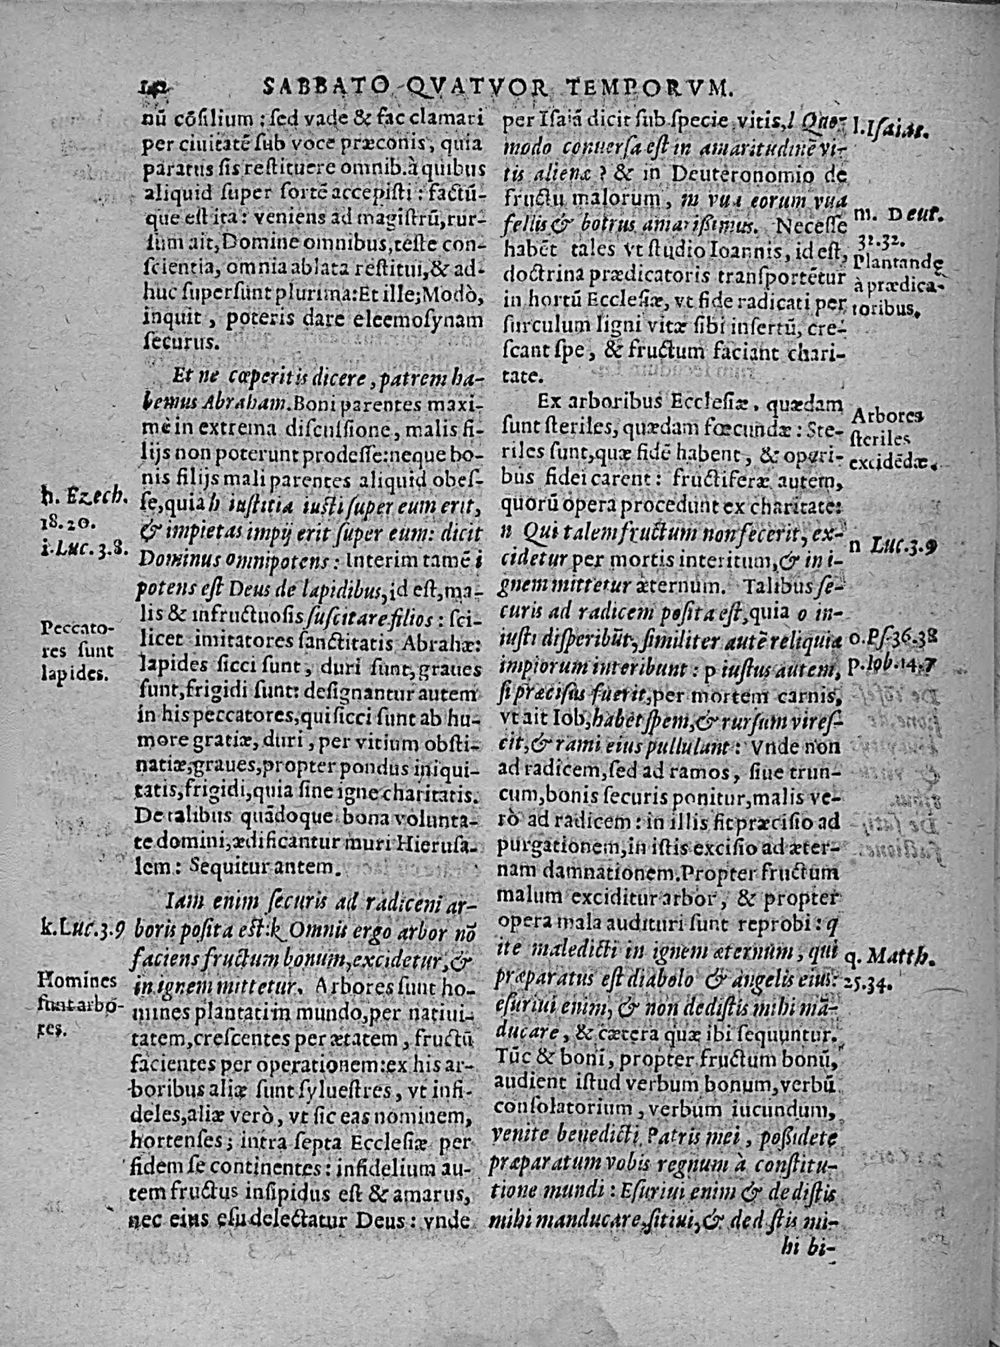 142 SABBATO QVATVOR TEMPORVM.
nũ cõsilium : sed vade & fac clamari
per ciuitatẽ sub voce præconis, quia
paratus sis restituere omnib. à quibus
aliquid super sortẽ accepisti : factũ-
que est ita : veniens ad magistrũ, rur-
sum ait, Domine omnibus, teste con-
scientia, omnia ablata restitui, & ad-
huc supersunt plurima: Et ille; Modò,
inquit, poteris dare eleemosynam
securus.
Et ne cœperitis dicere, patrem ha-
bemus Abraham. Boni parentes maxi-
mè in extrema discussione, malis fi-
lijs non poterunt prodesse: neque bo-
nis filijs mali parentes aliquid obes-
se, quia h iustitia iusti super eum erit,
& impietas impij erit super eum: dicit
Dominus omnipotens : Interim tamẽ i
potens est Deus de lapidibus, id est, ma-
lis & infructuosis suscitare filios : sci-
licet imitatores sanctitatis Abrahæ:
lapides sicci sunt, duri sunt, graues
sunt, frigidi sunt: designantur autem
in his peccatores, qui sicci sunt ab hu-
more gratiæ, duri, per vitium obsti-
natiæ, graues, propter pondus iniqui-
tatis, frigidi, quia sine igne charitatis.
De talibus quãdoque bona volunta-
te domini, ædificantur muri Hierusa-
lem : Sequitur autem.
Iam enim securis ad radicem ar-
boris posita est: k Omnis ergo arbor nõ
faciens fructum bonum, excidetur, &
in ignem mittetur. Arbores sunt ho-
mines plantati in mundo, per natiui-
tatem, crescentes per ætatem, fructũ
facientes per operationem: ex his ar-
boribus aliæ sunt syluestres, vt infi-
deles, aliæ verò, vt sic eas nominem,
hortenses; intra septa Ecclesiæ per
fidem se continentes : infidelium au-
tem fructus insipidus est & amarus,
nec eius esu delectatur Deus : vnde
h. Ezech.
18.20.
i. Luc. 3.8.
Peccato-
res sunt
lapides.
k. Luc. 3.9
Homines
sunt arbo-
res.
per Isaiã dicit sub specie vitis, l Quo-
modo conuersa est in amaritudinẽ vi-
tis alienæ ? & in Deuteronomio de
fructu malorum, m vua eorum vua
fellis & botrus amarißimus. Necesse
habẽt tales vt studio Ioannis, id est,
doctrina prædicatoris transportẽtur
in hortũ Ecclesiæ, vt fide radicati per
surculum ligni vitæ sibi insertũ, cre-
scant spe, & fructum faciant chari-
tate.
Ex arboribus Ecclesiæ, quædam
sunt steriles, quædam fœcundæ : Ste-
riles sunt, quæ fidẽ habent, & operi-
bus fidei carent : fructiferæ autem,
quorũ opera procedunt ex charitate:
n Qui talem fructum non fecerit, ex-
cidetur per mortis interitum, & in i-
gnem mittetur æternum. Talibus se-
curis ad radicem posita est, quia o in-
iusti disperibũt, similiter autẽ reliquia
impiorum interibunt : p iustus autem,
si præcisus fuerit, per mortem carnis,
vt ait Iob, habet spem, & rursum vires-
cit, & rami eius pullulant : Vnde non
ad radicem, sed ad ramos, siue trun-
cum, bonis securis ponitur, malis ve-
rò ad radicem : in illis fit præcisio ad
purgationem, in istis excisio ad æter-
nam damnationem. Propter fructum
malum exciditur arbor, & propter
opera mala audituri sunt reprobi : q
ite maledicti in ignem æternum, qui
præparatus est diabolo & angelis eius:
esuriui enim, & non dedistis mihi mã-
ducare, & cætera quæ ibi sequuntur.
Tũc & boni, propter fructum bonũ,
audient istud verbum bonum, verbũ
consolatorium, verbum iucundum,
venite benedicti Patris mei, poßidete
præparatum vobis regnum à constitu-
tione mundi : Esuriui enim & dedistis
mihi manducare, sitiui, & dedistis mi-
hi bi-
l. Isaiae.
m. Deut.
31.32.
Plantandę
à prædica-
toribus.
Arbores
steriles
excidẽdæ.
n Luc. 3.9
o. Ps. 36.38
p. Iob. 14.7
q. Matth.
25.34.